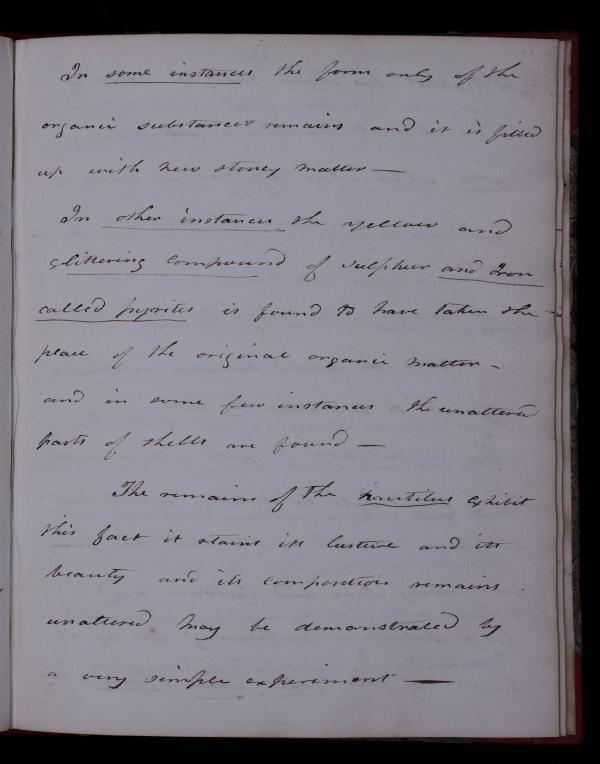 In some instances the form only of the
organic substances remains and it is filled
up with new stoney matter —
In other instances the yellow and
glittering compound of sulphur and Iron
called pyrites is found to have taken the
place of the original organic matter -
and in some few instances the unaltered
parts of shells are found —
The remains of the nautilus exhibit
this fact it retains its lustre and its
beauty and its composition remains
unaltered may be demonstrated by
a very simple experiment —